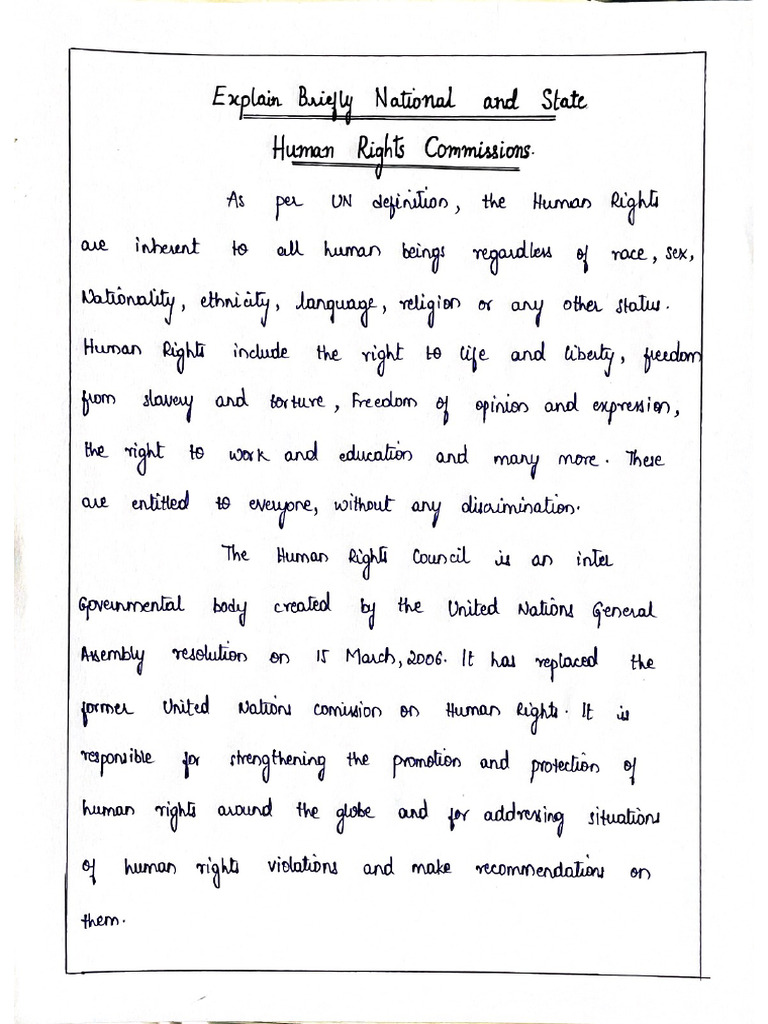 Explain Briefly National and State
Human Rights Commissions.
As per UN definition, the Human Rights
are inherent to all human beings regardless of race, sex,
Nationality, ethnicity, language, religion or any other status.
Human Rights include the right to life and liberty, freedom
from slavery and torture, Freedom of opinion and expression,
the right to work and education and many more. These
are entitled to everyone, without any discrimination.
The Human Rights Council is an inter
Governmental body created by the United Nations General
Assembly resolution on 15 March, 2006. It has replaced the
former United Nations comission on Human Rights. It is
responsible for strengthening the promotion and protection of
human rights around the globe and for addressing situations
of human rights violations and make recommendations on
them.